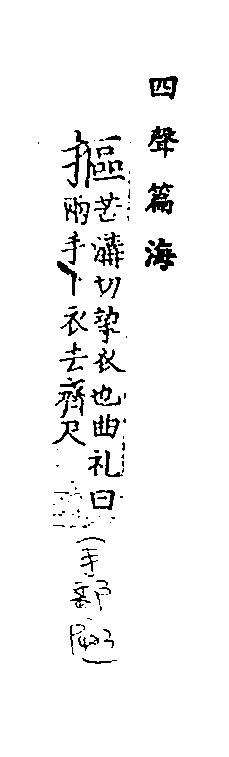 四聲篇海
摳芒溝切挈衣也曲礼曰
兩手卜衣去齊尺
(手部